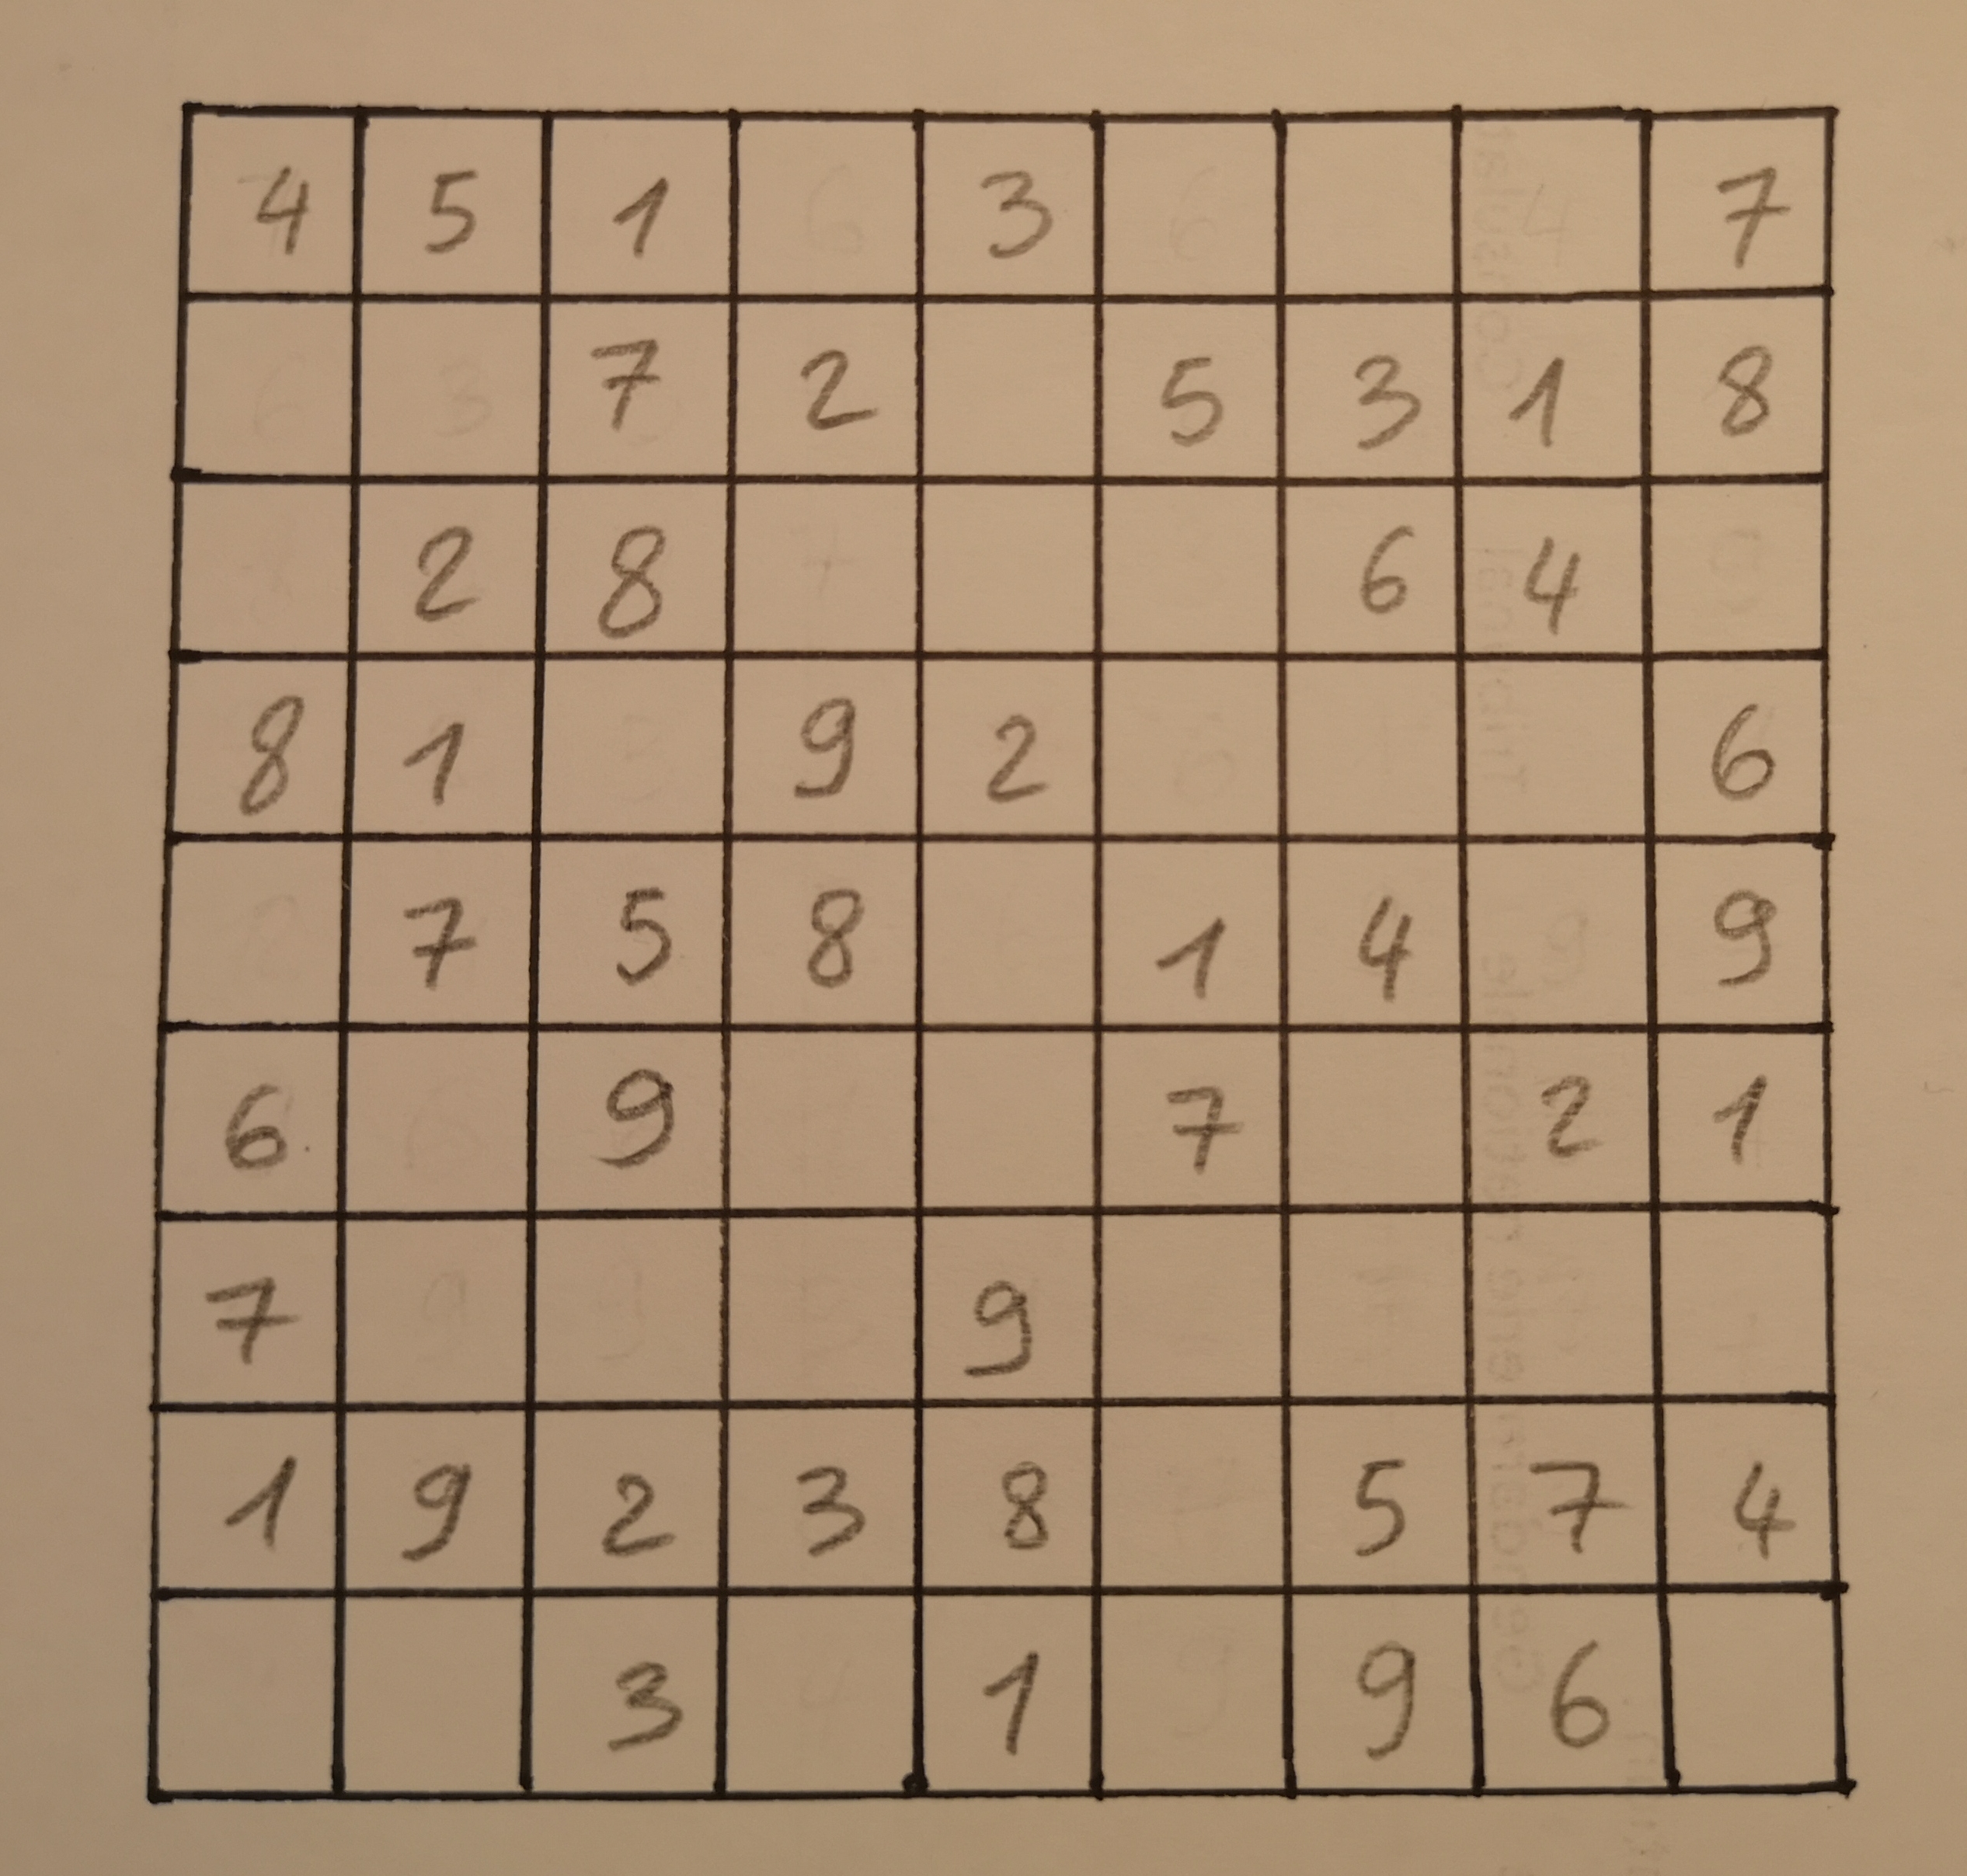 4 5 1 3 7
7 2 5 3 1 8
2 8 6 4
8 1 9 2 6
7 5 8 1 4 9
6 9 7 2 1
7 9
1 9 2 3 8 5 7 4
3 1 9 6